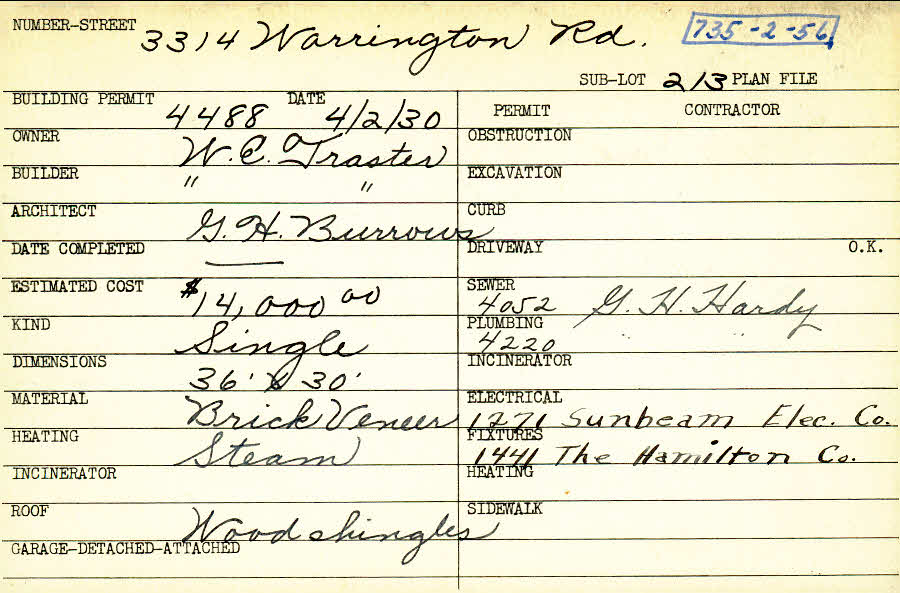 NUMBER-STREET 3314 Warrington Rd. 735-2-56
SUB-LOT 213 PLAN FILE
BUILDING PERMIT 4488 DATE 4/2/30
OWNER W.C. Traster
BUILDER " "
ARCHITECT G.H. Burrows
DATE COMPLETED —
ESTIMATED COST $14,000 00
KIND Single
DIMENSIONS 36' x 30'
MATERIAL Brick Veneer
HEATING Steam
INCINERATOR
ROOF Wood shingles
GARAGE-DETACHED-ATTACHED
PERMIT CONTRACTOR
OBSTRUCTION
EXCAVATION
CURB
DRIVEWAY O.K.
SEWER 4052 G. H. Hardy
PLUMBING 4220
INCINERATOR
ELECTRICAL 1271 Sunbeam Elec. Co.
FIXTURES 1441 The Hamilton Co.
HEATING
SIDEWALK